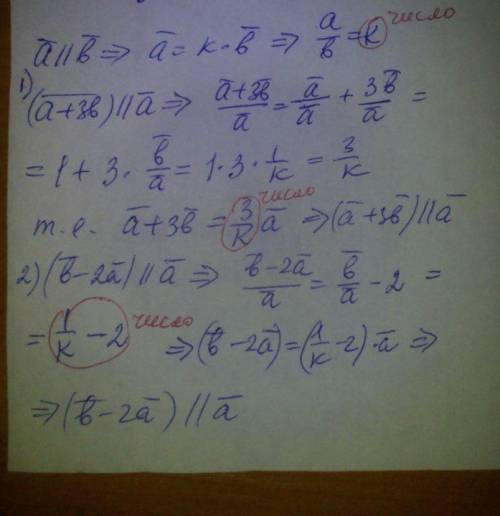 a̅ || b̅ ⇒ a̅ = к·b̅ ⇒ a/b̅ = k число
1) (a̅+3b̅) || a̅ ⇒ (a̅+3b̅)/a̅ = a̅/a̅ + 3b̅/a̅ =
= 1 + 3 · b̅/a̅ = 1·3·1/к = 3/к
т.е. a̅+3b̅ = 3/к a̅ число ⇒ (a̅+3b̅) || a̅
2) (b̅-2a̅) || a̅ ⇒ (b-2a̅)/a̅ = b̅/a̅ - 2 =
= 1/к - 2 число ⇒ (b̅-2a̅) = (1/к - 2)·a̅ ⇒
⇒ (b̅-2a̅) || a̅